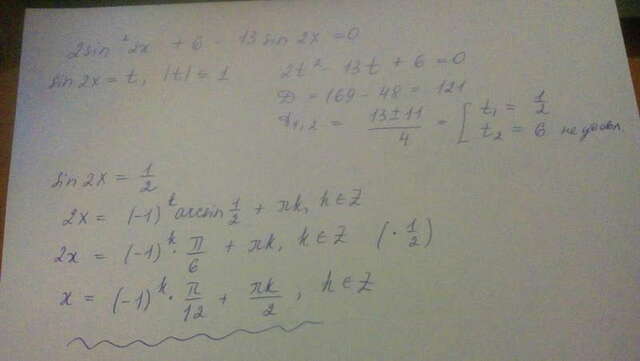 2sin²2x + 6 - 13 sin 2x = 0
sin 2x = t, |t| ≤ 1
2t² - 13t + 6 = 0
D = 169 - 48 = 121
t₁,₂ = (13 ± 11)/4 = [ t₁ = 1/2
t₂ = 6 не удовл.
sin 2x = 1/2
2x = (-1)^k arcsin 1/2 + πk, k ∈ Z
2x = (-1)^k · π/6 + πk, k ∈ Z (· 1/2)
x = (-1)^k · π/12 + πk/2, k ∈ Z